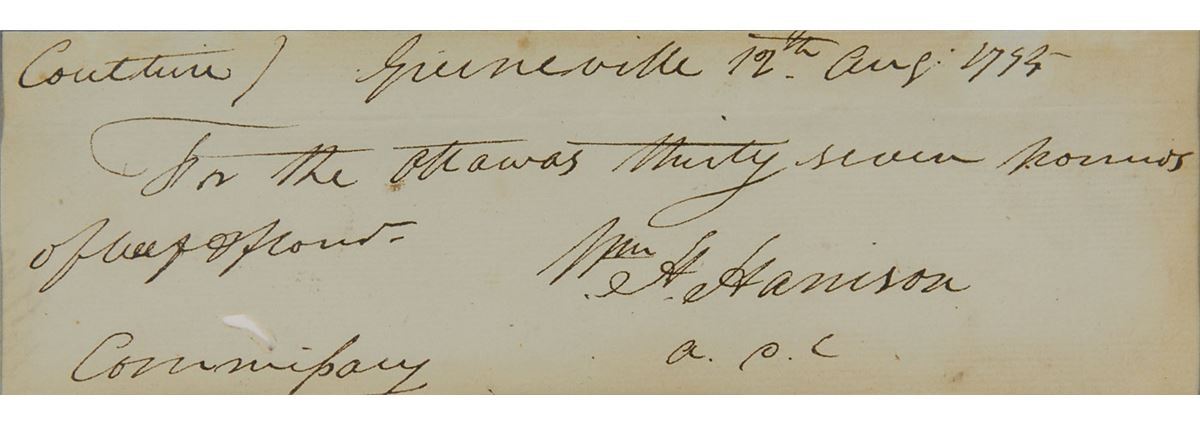 Couture) Greeneville 12th Aug. 1795
For the Ottawas thirty seven pounds
of beef & flour.
Wm H. Harrison
a. d. c
Commissary